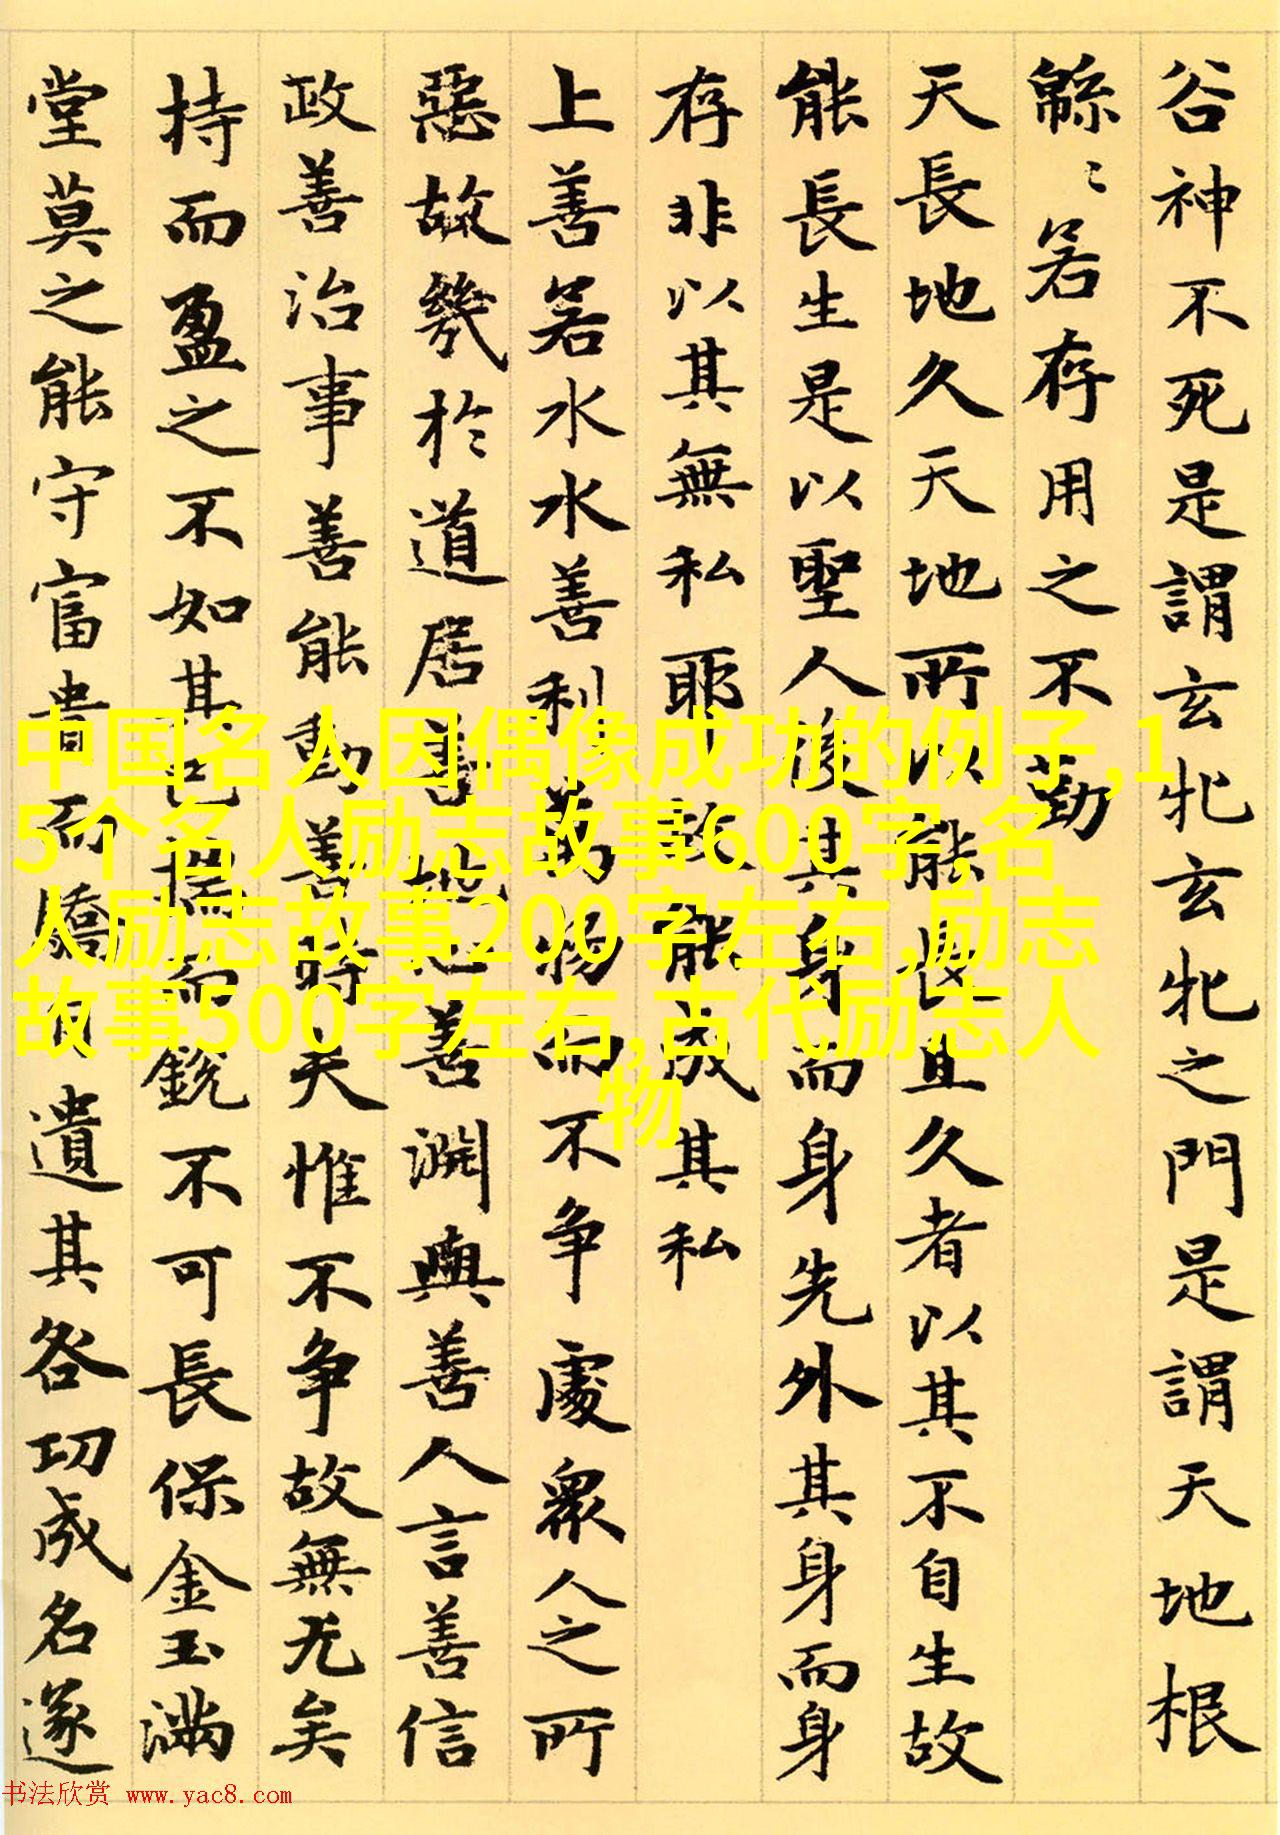 谷神不死是謂玄牝玄牝之門是謂天地根
緜〻若存用之不勤
天長地久天地所以能長且久者以其不自生故
能長生是以聖人後其身而身先外其身而身
存非以其無私耶故能成其私
上善若水水善利萬物而不争處衆人之所
惡故幾於道居善地心善淵與善人言善信
政善治事善能動善時夫惟不争故無尤矣
持而盈之不如其已揣而銳不可長保金玉滿
堂莫之能守富貴而驕自遺其咎功成名遂
中国名人因偶像成功的例子,1
5个名人励志故事600字,名
人励志故事200字左右,励志
故事500字左右,古代励志人
物
书法欣赏 www.yac8.com